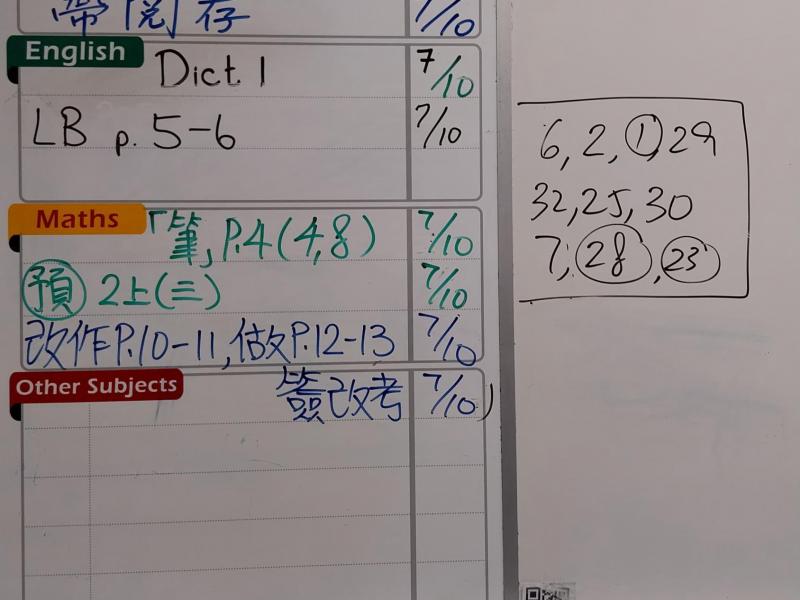 帶閱存 7/10
English Dict. 1 7/10
LB p. 5-6 7/10
Maths 「筆, P.4(4,8) 7/10
預 2上(三) 7/10
改作P.10-11,做P.12-13 7/10
Other Subjects 簽改考 7/10)
6, 2, 1, 29
32, 25, 30
7, 28, 23